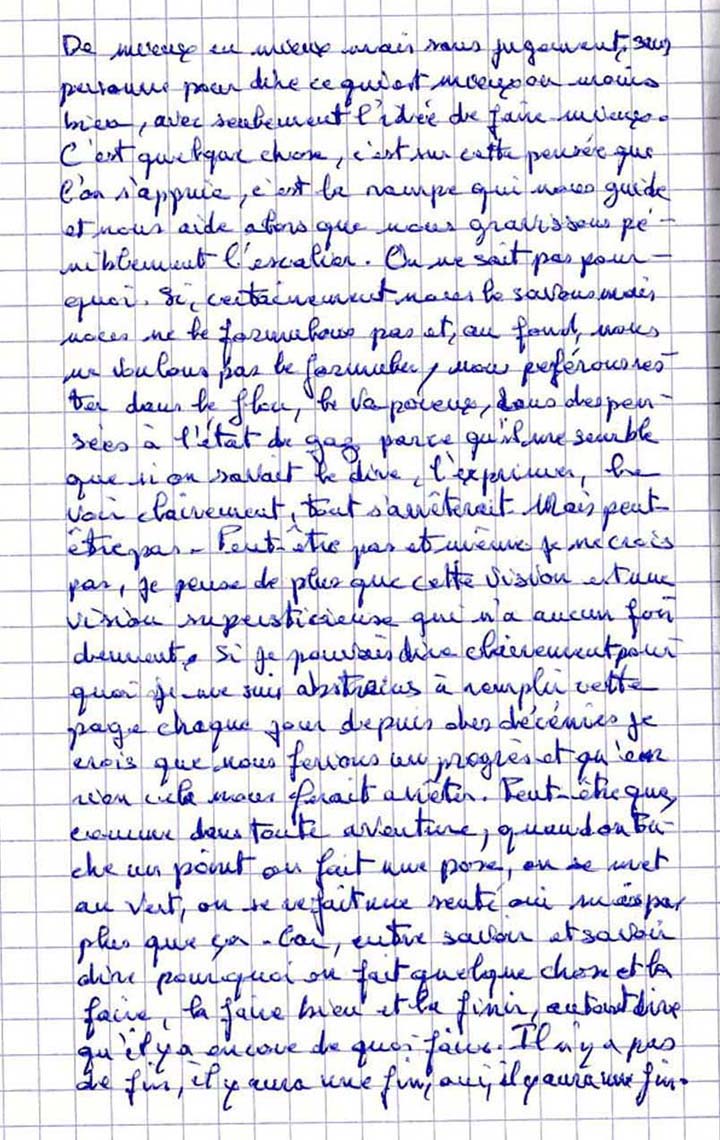 De mieux en mieux mais sans jugement, sans
personne pour dire ce qui est mieux ou moins
bien, avec seulement l'idée de faire mieux.
C'est quelque chose, c'est sur cette pensée que
l'on s'appuie, c'est la rampe qui nous guide
et nous aide alors que nous gravissons pé-
niblement l'escalier. On ne sait pas pour-
quoi. Si, certainement nous le savons mais
nous ne le formulons pas et, au fond, nous
ne voulons pas le formuler, nous préférons res-
ter dans le flou, le vaporeux, dans des pen-
sées à l'état de gaz parce qu'il me semble
que si on savait le dire, l'exprimer, le
voir clairement, tout s'arrêterait. Mais peut-
être pas. Peut-être pas et même je ne crois
pas, je pense de plus que cette vision est une
vision supersticieuse qui n'a aucun fon
dement. Si je pouvais dire clairement pour
quoi je me suis abstreins à remplir cette
page chaque jour depuis des décénies je
crois que nous ferions un progrès et qu'en
rien cela nous ferait arrêter. Peut-être que,
comme dans toute aventure, quand on tou-
che un point on fait une pose, on se met
au vert, on se refait une santé oui mais pas
plus que ça. Car, entre savoir et savoir
dire pourquoi on fait quelque chose et la
faire, la faire bien et la finir, autant dire
qu'il y a encore de quoi faire. Il n'y a pas
de fin, il y aura une fin, oui, il y aura une fin.